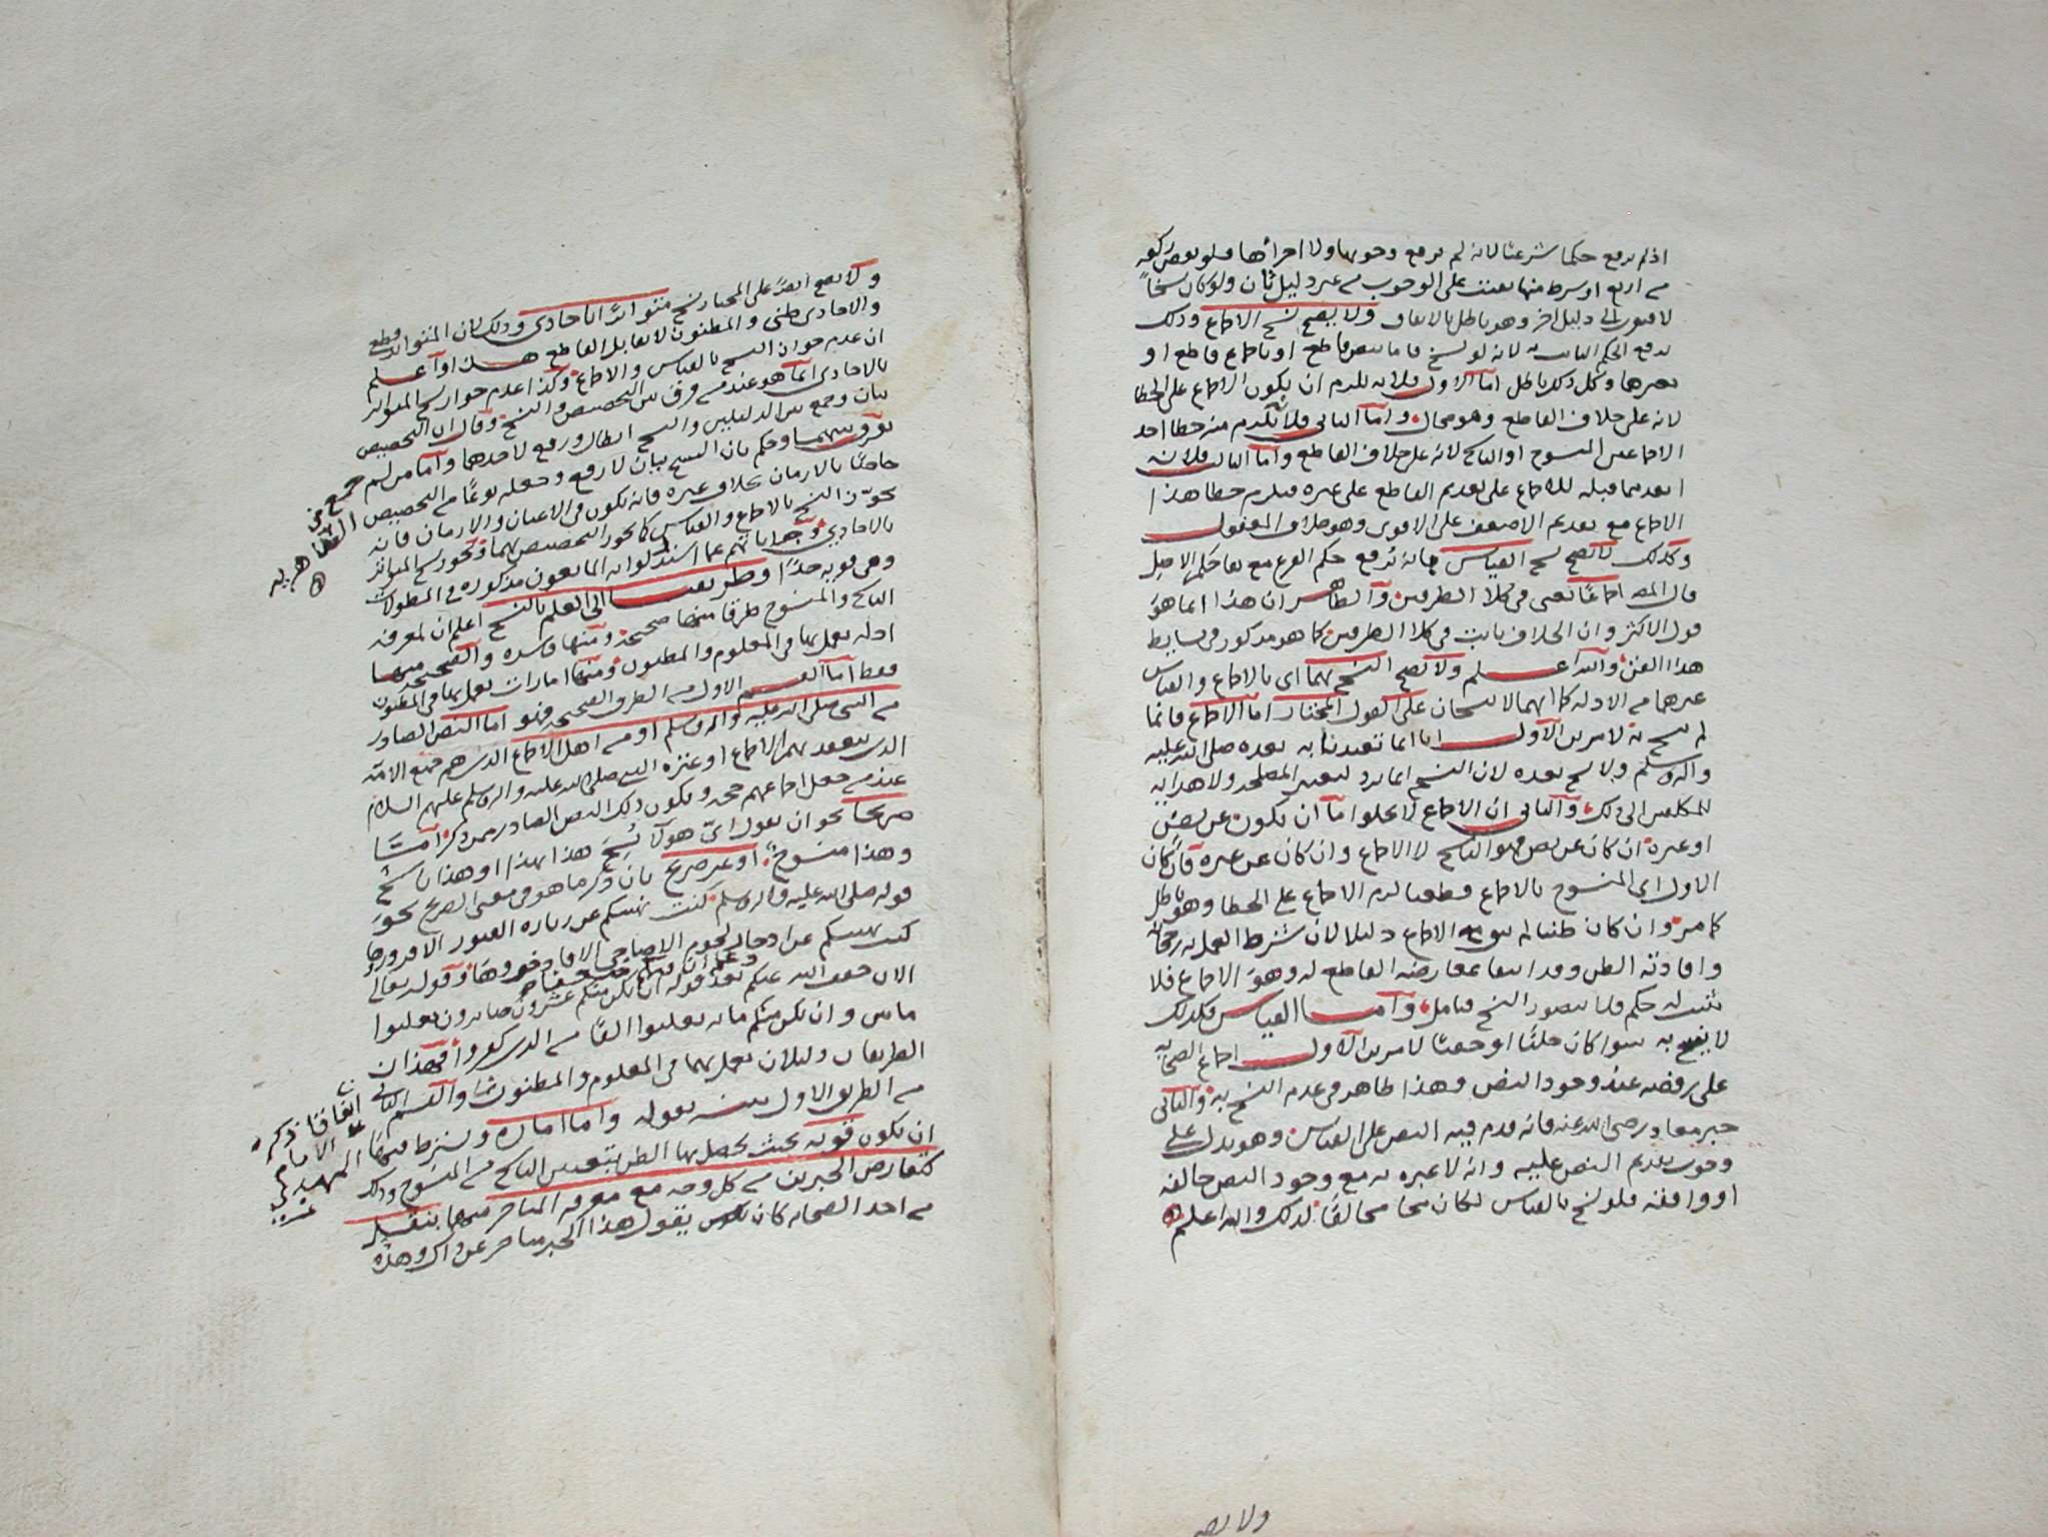 اذ لم يرفع حكما شرعيا لانه لم يرفع وجوبها ولا اجزائها فلو نقص ركعه
من اربع او شرط منها بقيت على الوجوب من غير دليل ثان ولو كان نسخاً
لافتقرت الى دليل اخر وهو باطل بالاتفاق ولا يصح نسخ الاجماع وذلك
يرفع الحكم الثابت به لانه لو نسخ فاما بنص قاطع او باجماع قاطع او
بغيرها وكل ذلك باطل اما الاول فلانه يلزم ان يكون الاجماع على الخطا
لانه على خلاف القاطع وهو محال واما الثاني فلانه يلزم منه خطا احد
الاجماعين المنسوخ او الناسخ لانه على خلاف القاطع واما الثالث فلانه
ابعد مما قبله للاجماع على تقديم القاطع على غيره فيلزم خطا هذا
الاجماع مع تقديم الاضعف على الاقوى وهو خلاف المعقول
وكذلك لا يصح نسخ القياس فانه يرفع حكم الفرع مع بقا حكم الاصل
قال المص اجماعًا يعني في كلا الطرفين والظاهر ان هذا انما هو
قول الاكثر وان الخلاف ثابت في كلا الطرفين كما هو مذكور في بسايط
هذا الفن والله اعلم ولا يصح النسخ بهما اى بالاجماع والقياس
غيرهما من الادله كما انهما لا ينسخان على القول المختار اما الاجماع فانما
لم ينسخ به لامرين الاول انا انما تعبدنا به بعده صلى الله عليه
واله وسلم ولا نسخ بعده لان النسخ انما يرد لتغير المصلحه ولا هدايه
للمكلفين الى ذلك والثاني ان الاجماع لا يخلوا ما ان يكون عن نص
او غيره ان كان عن نص فهو الناسخ لا الاجماع وان كان عن غيره فان كان
الاول اى المنسوخ بالاجماع قطعيا لزم الاجماع على الخطا وهو باطل
كما مر وان كان ظنيا لم يبق مع الاجماع دليلا لان شرط العمل به رجحانه
وافادته الظن وقد انتفا بمعارضه القاطع له وهو الاجماع فلا
يثبت له حكم فلا يتصور النسخ فتامل واما القياس فكذلك
لا ينسخ به سوا كان جليًا او خفيًا لامرين الاول اجماع الصحابه
على رفضه عند وجود النص وهذا ظاهر في عدم النسخ به والثاني
خبر معاذ رضي الله عنه فانه قدم فيه النص على القياس وهو يدل على
وجوب تقديم النص عليه وانه لا عبره به مع وجود النص خالفه
او وافقه فلو نسخ بالقياس لكان مخالفًا لذلك والله اعلم
ولا يصح
ولا يصح ايضًا على المختار نسخ متواترًا باحادى وذلك لان المتواتر قطعي
والاحادى ظني والمظنون لا يقابل القاطع هذا واعلم
ان عدم جواز النسخ بالقياس والاجماع وكذا عدم جواز نسخ المتواتر
بالاحادى انما هو عند من فرق بين التخصيص والنسخ وقال ان التخصيص
بيان وجمع بين الدليلين والنسخ ابطال ورفع لاحدهما واما من لم
يفرق بينهما وحكم بان النسخ بيان لا رفع وجعله نوعًا من التخصيص
خاصًا بالازمان بخلاف غيره فانه يكون في الاعيان والازمان فانه
يجوّز النسخ بالاجماع والقياس كما يجوز التخصيص بهما ويجوز نسخ المتواتر
بالاحادى وجوابهم عما استدلوا به المانعون مذكوره في المطولات
وهي قويه جدًا وطريقنا الى العلم بالنسخ اعلم ان لمعرفه
الناسخ والمنسوخ طرقا منها صحيحه ومنها فاسده والصحيحه منها
ادله يعمل بها في المعلوم والمظنون ومنها امارات يعمل بها في المظنون
فقط اما القسم الاول من الطرق الصحيحه فهو اما النص الصادر
من النبي صلى الله عليه واله وسلم او من اهل الاجماع الذين هم جميع الامّه
الذين ينعقد بهم الاجماع او عتره النبي صلى الله عليه واله وسلم عليهم السلام
عند من جعل اجماعهم حجه ويكون ذلك النص الصادر ممن ذكر امّا
صريحا نحو ان يقول اىّ هولآ نُسِخ هذا بهذا او هذا ناسخ
وهذا منسوخ او غير صريح بان ذكر ما هو في معنى الصريح نحو
قوله صلى الله عليه واله وسلم كنت نهيتكم عن زياره القبور الا فزوروها
كنت نهيتكم عن ادخار لحوم الاضاحي الا فادخروها وقوله تعالى
الان خفف الله عنكم وعلم ان فيكم ضعفا بعد قوله ان يكن منكم عشرون صابرون يغلبوا
ماتين وان يكن منكم مائه يغلبوا الفًا من الذين كفروا فهذان
الطريقان دليلان يعمل بهما في المعلوم والمظنون والقسم الثاني
من الطريق الاول بينه بقوله واما اماره ويشترط فيها
ان تكون قويه بحيث يحصل بها الظن بتعيين الناسخ من المنسوخ وذلك
كتعارض الخبرين من كل وجه مع معرفه المتاخر منهما بنقل
من احد الصحابه كان يقول هذا الخبر متاخر عن ذاك وهذه
جمع من
الظاهريه
اتفاقا ذكره
الامام
المهدي